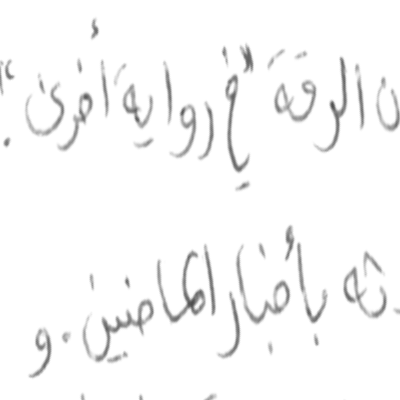 الرقة "في رواية أخرى":
بأخبار الماضيين. و